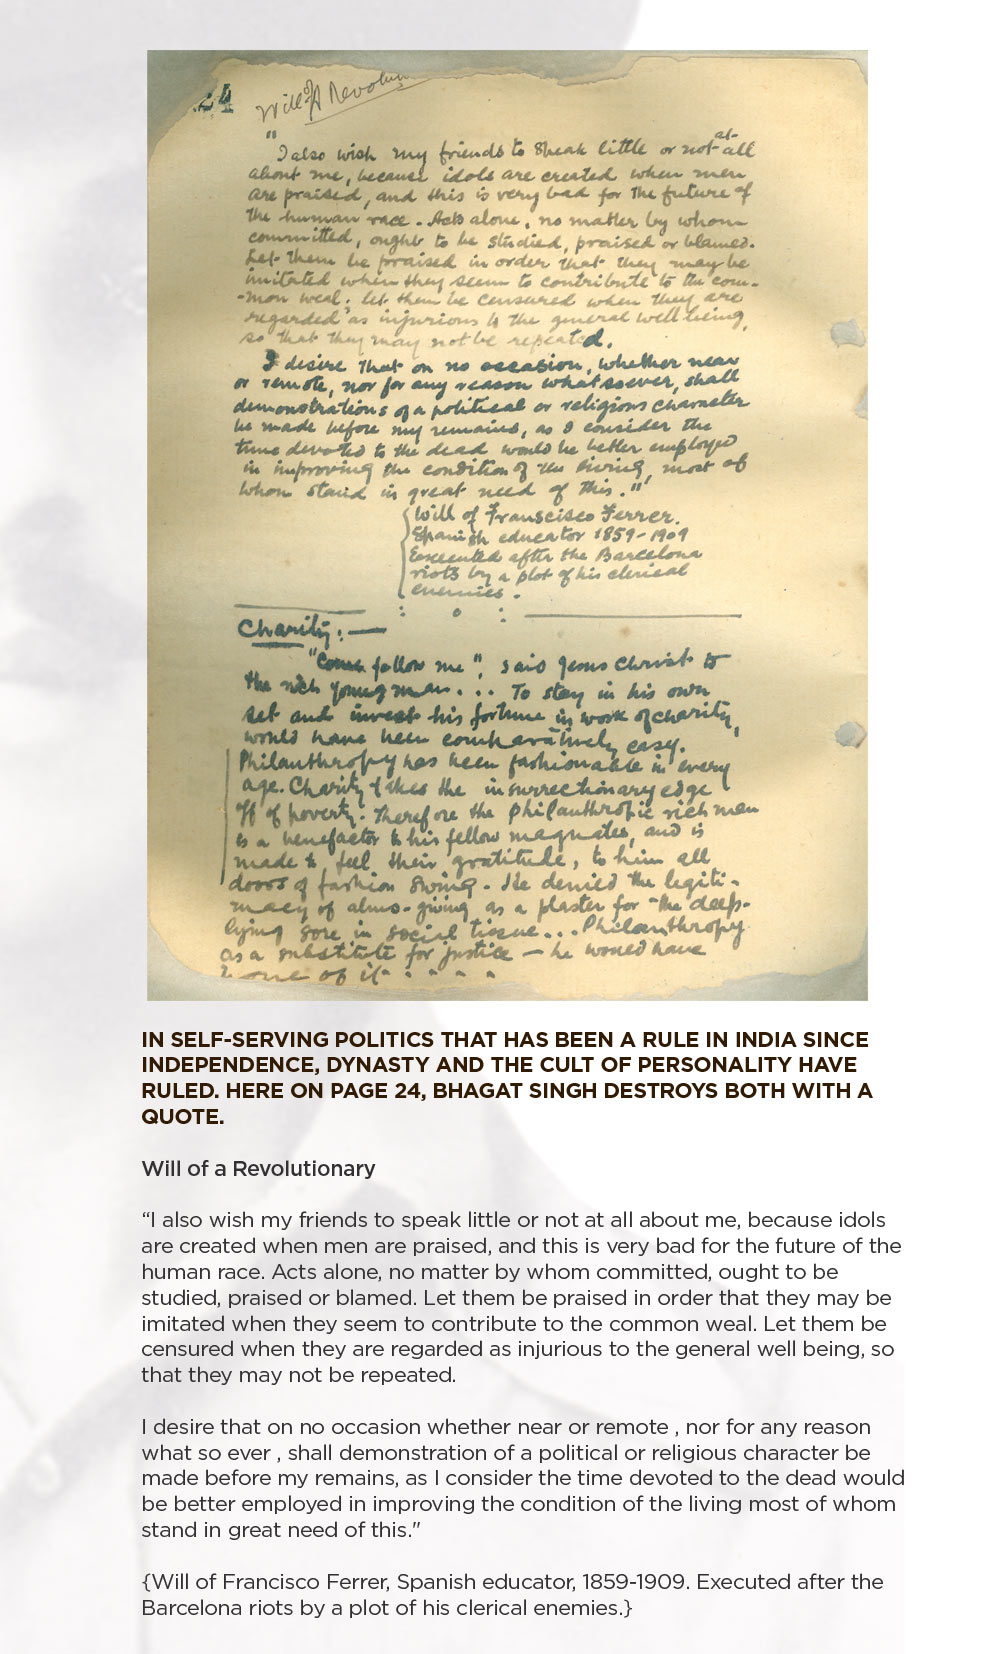 24
Will of A Revolu
"I also wish my friends to speak little or not at all
about me, because idols are created when men
are praised, and this is very bad for the future of
the human race. Acts alone, no matter by whom
committed, ought to be studied, praised or blamed.
Let them be praised in order that they may be
imitated when they seem to contribute to the com-
-mon weal. Let them be censured when they are
regarded as injurious to the general well being,
so that they may not be repeated.
I desire that on no occasion, whether near
or remote, nor for any reason what soever, shall
demonstrations of a political or religious character
be made before my remains, as I consider the
time devoted to the dead would be better employed
in improving the condition of the living, most of
whom stand in great need of this."
Will of Franscisco Ferrer.
Spanish educator 1859-1909
Executed after the Barcelona
riots by a plot of his clerical
enemies.
Charity:—
"Come follow me", said Jesus Christ to
the rich young man.... To stay in his own
set and invest his fortune in work of charity,
would have been comparatively easy.
Philanthropy has been fashionable in every
age. Charity takes the insurrectionary edge
off of poverty. Therefore the philanthropic rich man
is a benefactor to his fellow magnates, and is
made to feel their gratitude, to him all
doors of fashion swing. He denied the legiti-
macy of alms-giving as a plaster for the deep-
lying sore in social tissue... Philanthropy
as a substitute for justice — he would have
none of it.....
IN SELF-SERVING POLITICS THAT HAS BEEN A RULE IN INDIA SINCE
INDEPENDENCE, DYNASTY AND THE CULT OF PERSONALITY HAVE
RULED. HERE ON PAGE 24, BHAGAT SINGH DESTROYS BOTH WITH A
QUOTE.
Will of a Revolutionary
“I also wish my friends to speak little or not at all about me, because idols
are created when men are praised, and this is very bad for the future of the
human race. Acts alone, no matter by whom committed, ought to be
studied, praised or blamed. Let them be praised in order that they may be
imitated when they seem to contribute to the common weal. Let them be
censured when they are regarded as injurious to the general well being, so
that they may not be repeated.
I desire that on no occasion whether near or remote , nor for any reason
what so ever , shall demonstration of a political or religious character be
made before my remains, as I consider the time devoted to the dead would
be better employed in improving the condition of the living most of whom
stand in great need of this."
{Will of Francisco Ferrer, Spanish educator, 1859-1909. Executed after the
Barcelona riots by a plot of his clerical enemies.}